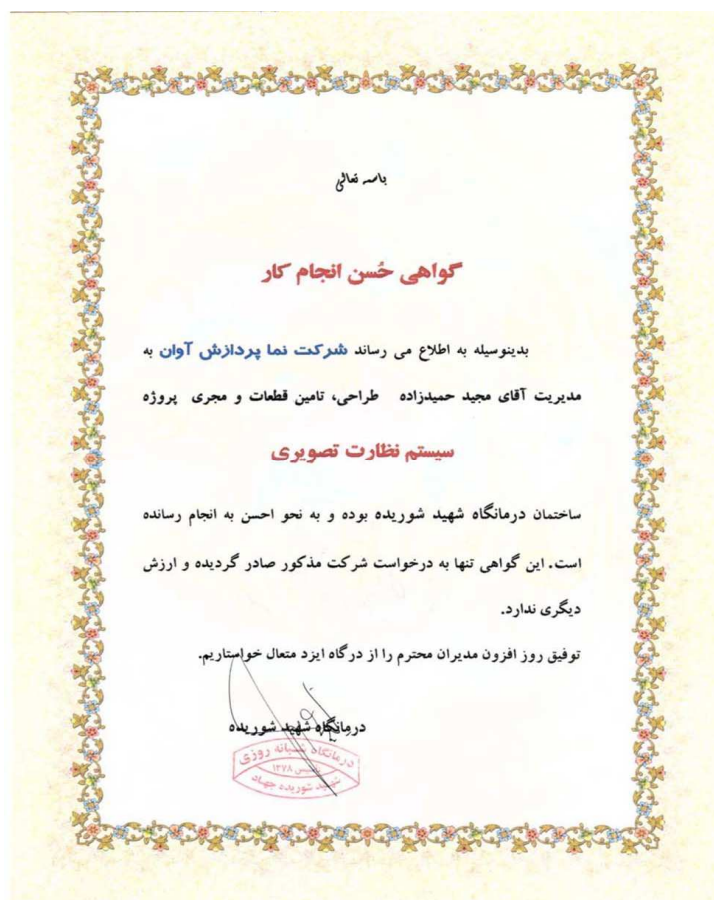 باسمه تعالی
گواهی حُسن انجام کار
بدینوسیله به اطلاع می رساند شرکت نما پردازش آوان به
مدیریت آقای مجید حمیدزاده طراحی، تامین قطعات و مجری پروژه
سیستم نظارت تصویری
ساختمان درمانگاه شهید شوریده بوده و به نحو احسن به انجام رسانده
است. این گواهی تنها به درخواست شرکت مذکور صادر گردیده و ارزش
دیگری ندارد.
توفیق روز افزون مدیران محترم را از درگاه ایزد متعال خواستاریم.
درمانگاه شهید شوریده
درمانگاه شبانه روزی
تاسیس ۱۳۷۸
شهید شوریده جهاد